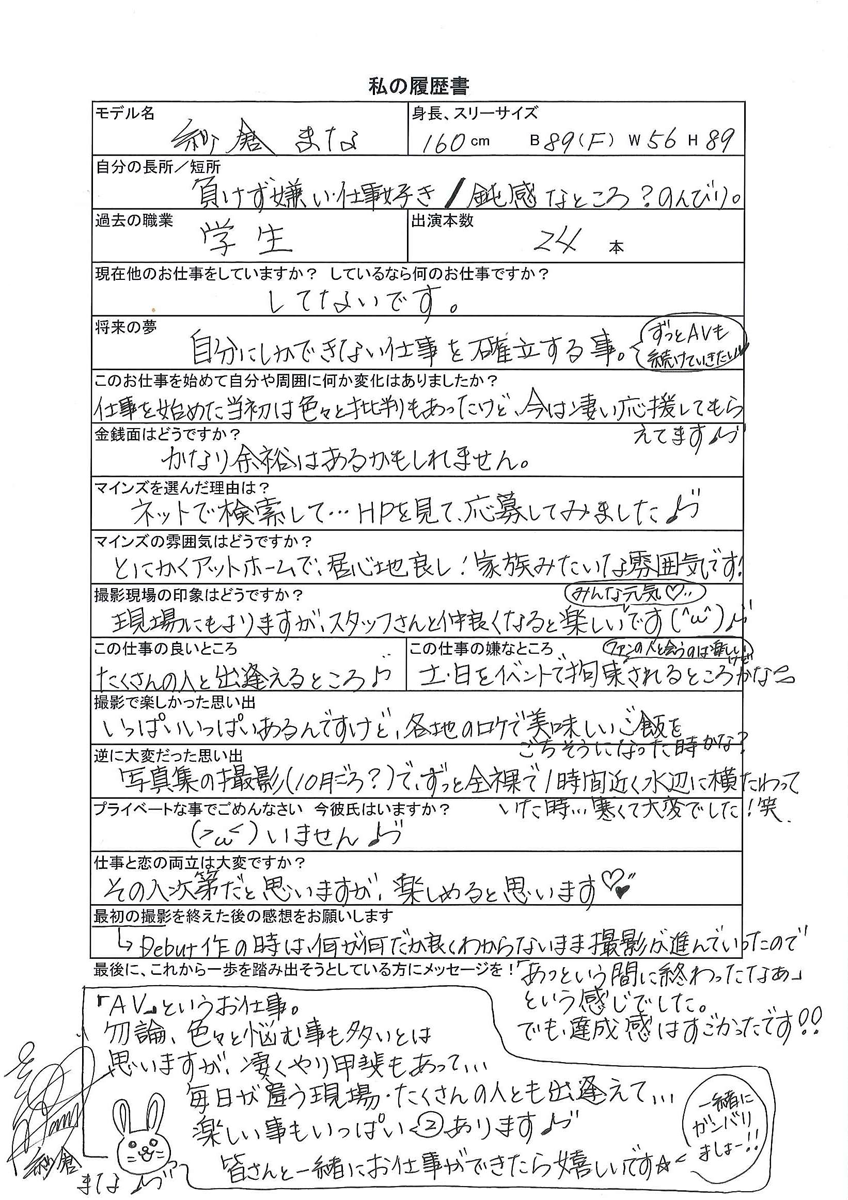 私の履歴書
モデル名
紗倉 まな
身長、スリーサイズ
160cm B89(F) W56 H89
自分の長所／短所
負けず嫌い・仕事好き / 鈍感なところ？のんびり。
過去の職業
学生
出演本数
24 本
現在他のお仕事をしていますか？ しているなら何のお仕事ですか？
してないです。
将来の夢
自分にしかできない仕事を確立する事。
ずっとAVも
続けていきたい
このお仕事を始めて自分や周囲に何か変化はありましたか？
仕事を始めた当初は色々と批判もあったけど、今は凄い応援してもら
えてます♪
金銭面はどうですか？
かなり余裕はあるかもしれません。
マインズを選んだ理由は？
ネットで検索して…HPを見て、応募してみました♪
マインズの雰囲気はどうですか？
とにかくアットホームで、居心地良し！家族みたいな雰囲気です！
撮影現場の印象はどうですか？
みんな元気♡…
現場にもよりますが、スタッフさんと仲良くなると楽しいです(^ω^)♪
この仕事の良いところ
たくさんの人と出逢えるところ♪
この仕事の嫌なところ
ファンの人と会うのは楽しいけど
土・日をイベントで拘束されるところかな
撮影で楽しかった思い出
いっぱいいっぱいあるんですけど、各地のロケで美味しいご飯を
ごちそうになった時かな？
逆に大変だった思い出
写真集の撮影(10月ごろ？)で、ずっと全裸で1時間近く水辺に横たわって
いた時…寒くて大変でした！笑
プライベートな事でごめんなさい 今彼氏はいますか？
(>ω<)いません♪
仕事と恋の両立は大変ですか？
その人次第だと思いますが、楽しめると思います♡
最初の撮影を終えた後の感想をお願いします
↳Debut作の時は、何が何だか良くわからないまま撮影が進んでいったので
「あっという間に終わったなぁ」
という感じでした。
でも、達成感はすごかったです!!
最後に、これから一歩を踏み出そうとしている方にメッセージを！
「AV」というお仕事。
勿論、色々と悩む事も多いとは
思いますが、凄くやり甲斐もあって…
毎日が違う現場・たくさんの人とも出逢えて…
楽しい事もいっぱい②あります♪
皆さんと一緒にお仕事ができたら嬉しいです☆
一緒に
ガンバり
ましょー!!
紗倉
まな♪